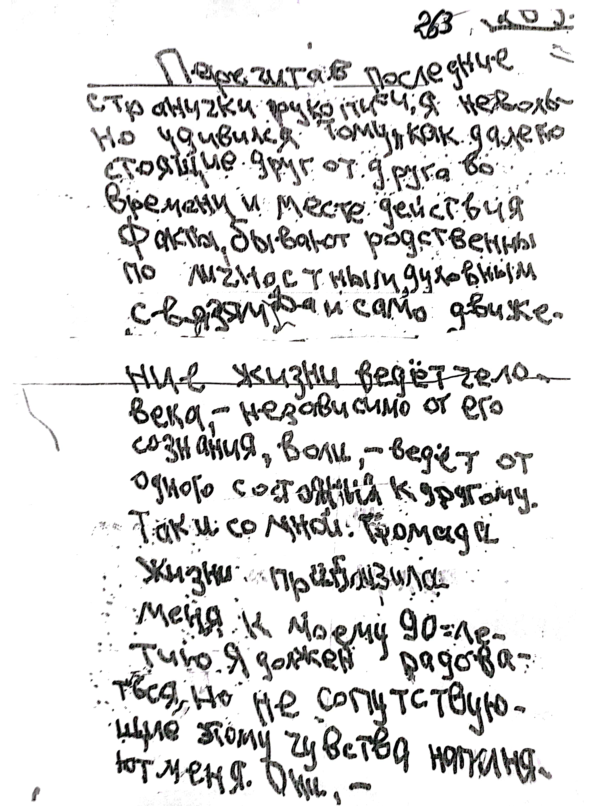 263
Перечитав последние
странички рукописи, я неволь-
но удивился тому, как далеко
стоящие друг от друга во
времени и месте действия
факты, бывают родственны
по личностным, духовным
связям. Да и само движе-
ние жизни ведёт чело-
века, – независимо от его
сознания, воли, – ведёт от
одного состояния к другому.
Так и со мной. Громада
жизни приблизила
меня к моему 90=ле-
тию. Я должен радова-
ться, но не сопутствую-
щие этому чувства
ют меня. Они, –